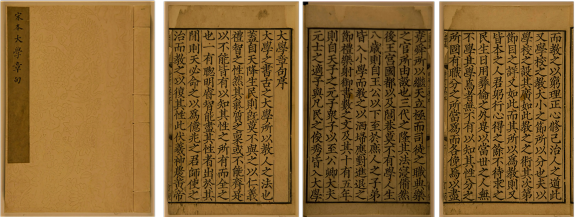 宋本大學章句
大學章句序
大學之書古之大學所以教人之法也
蓋自天降生民則既莫不與之以仁義
禮智之性矣然其氣質之稟或不能齊是
以不能皆有以知其性之所有而全之
也一有聰明睿智能盡其性者出於其
閒則天必命之以爲億兆之君師使之
治而教之以復其性此伏羲神農黃帝
堯舜所以繼天立極而司徒之職典樂
之官所由設也三代之隆其法寖備然
後王宮國都以及閭巷莫不有學人生
八歲則自王公以下至於庶人之子弟
皆入小學而教之以灑埽應對進退之
節禮樂射御書數之文及其十有五年
則自天子之元子衆子以至公卿大夫
元士之適子與凡民之俊秀皆入大學
而教之以窮理正心修己治人之道此
又學校之教大小之節所以分也夫以
學校之設其廣如此教之之術其次第
節目之詳又如此而其所以爲教則又
皆本之人君躬行心得之餘不待求之
民生日用彝倫之外是以當世之人無
不學其學焉者無不有以知其性分之
所固有職分之所當爲而各俛焉以盡